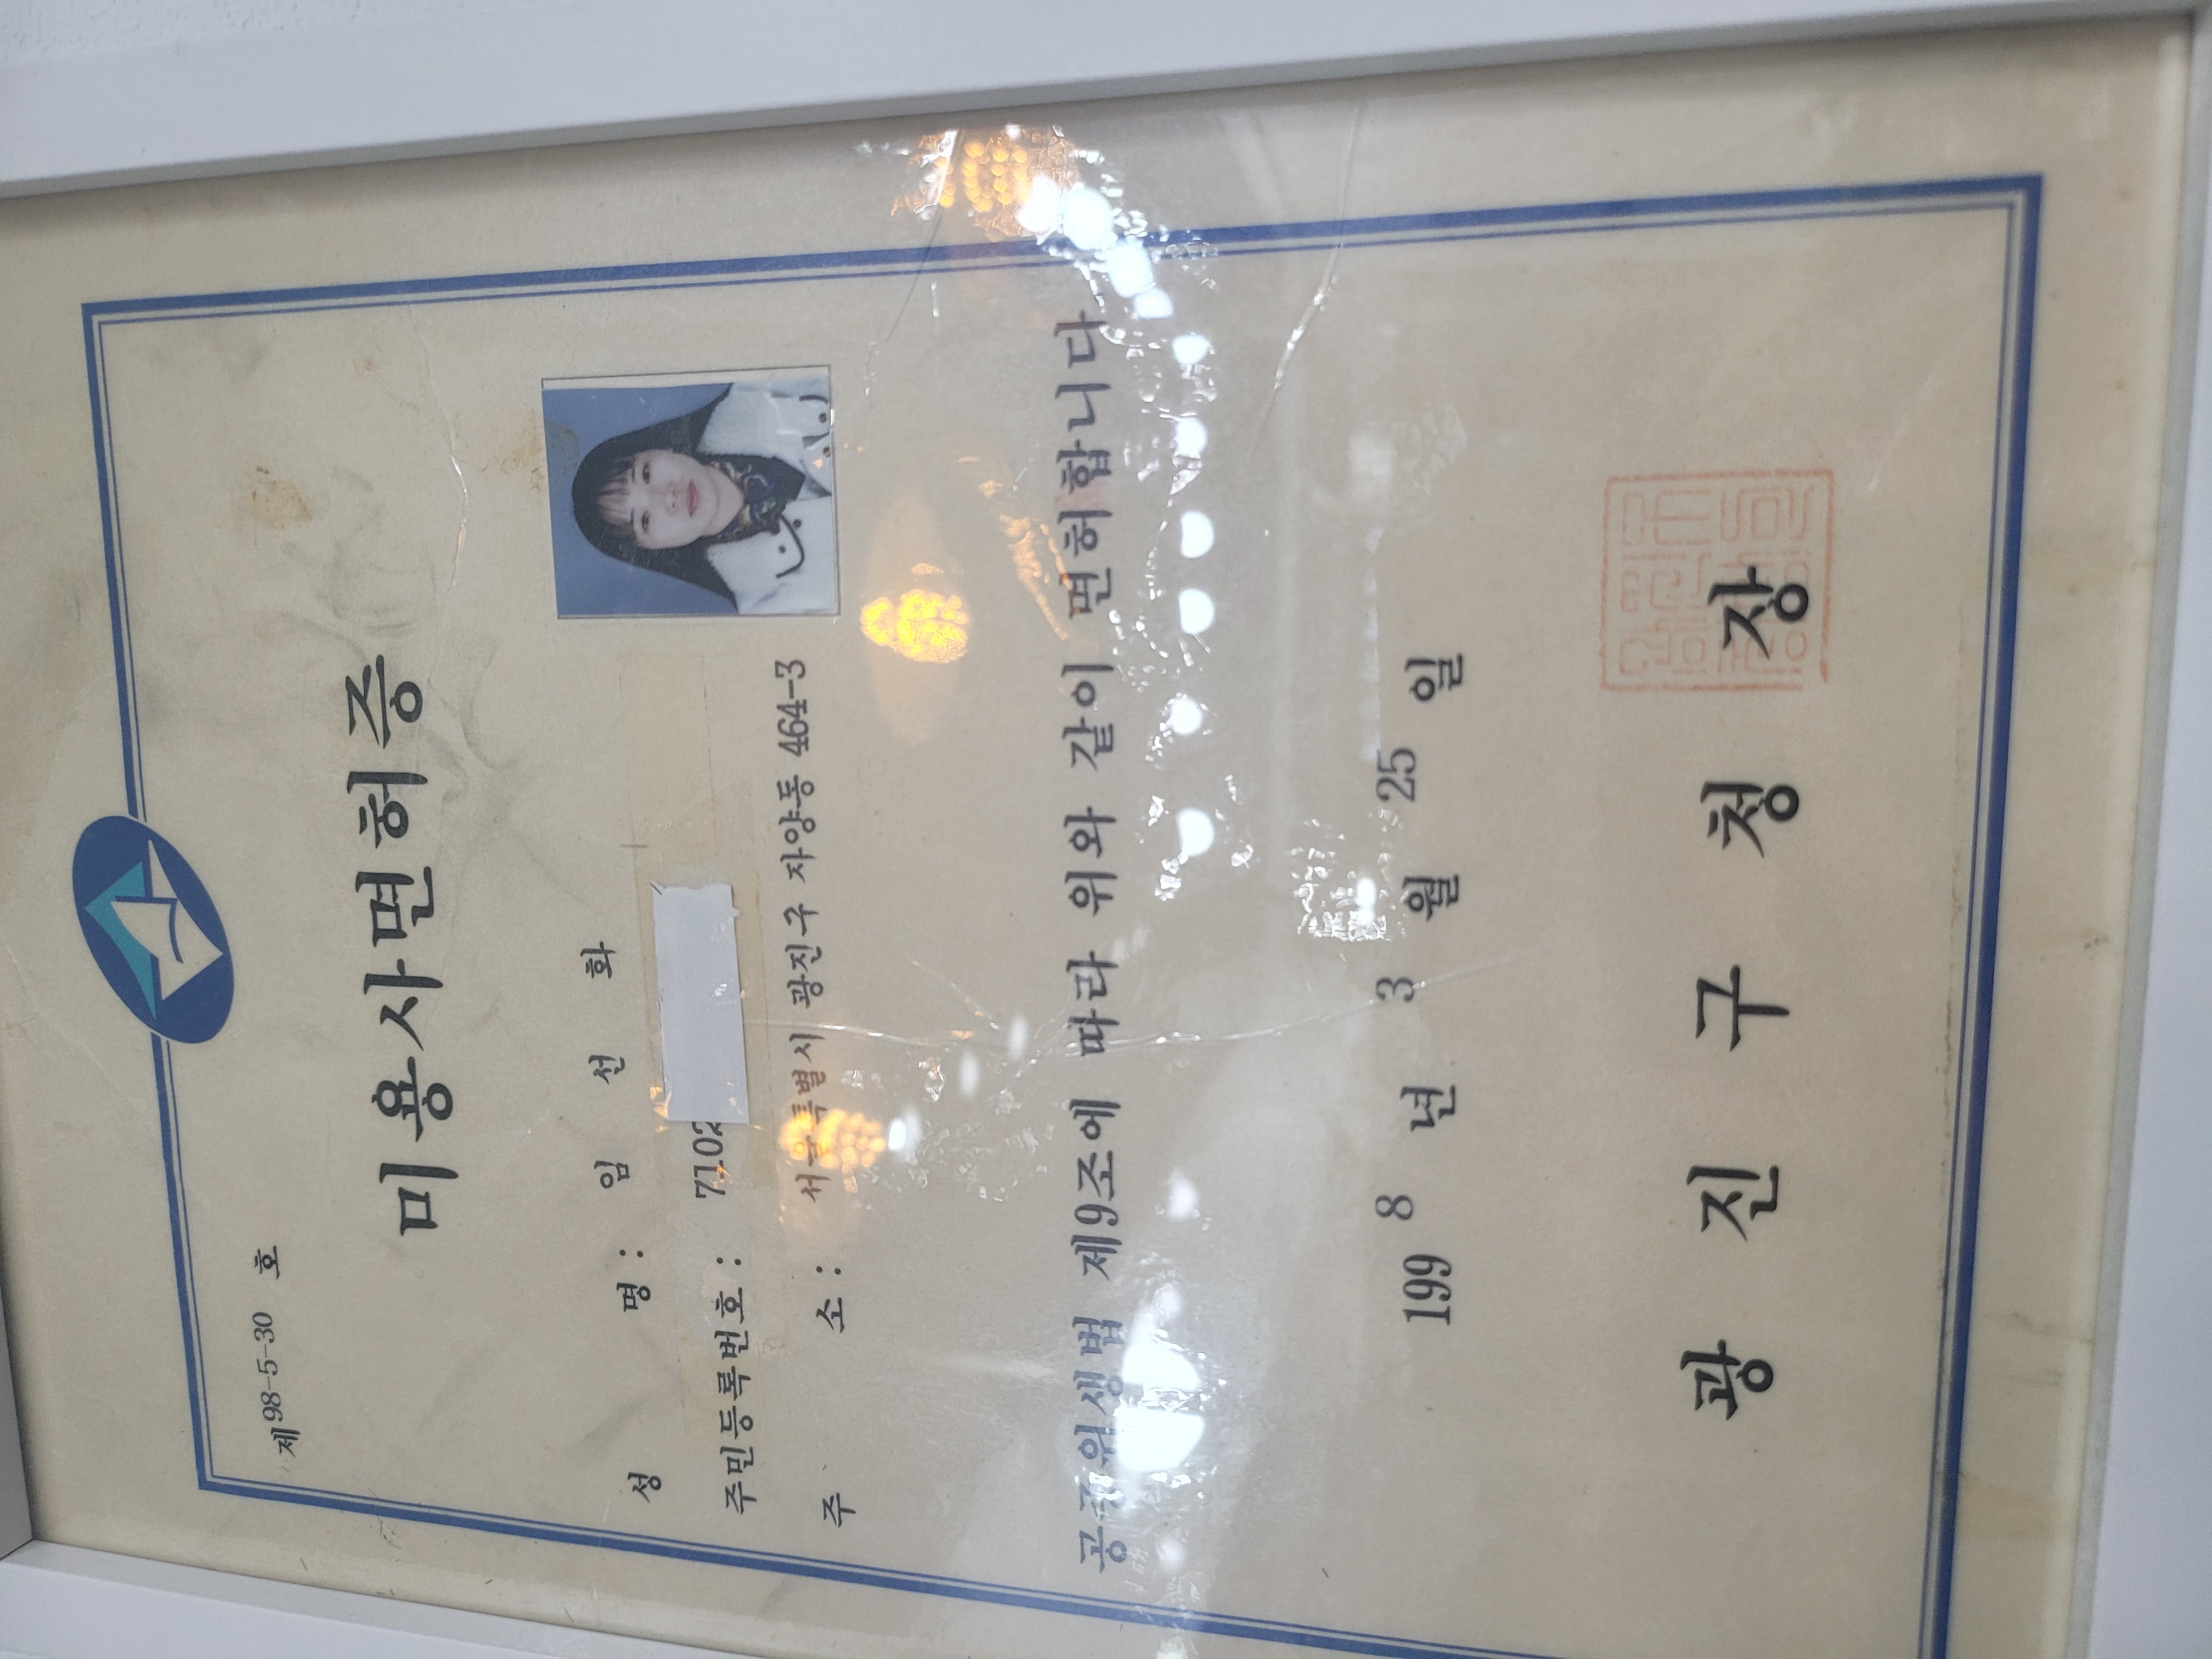 제 98-5-30 호
미용사면허증
성 명 : 임 선 화
주민등록번호 : 71.02
주 소 : 서울특별시 광진구 자양동 464-3
공중위생법 제9조에 따라 위와 같이 면허합니다
199 8 년 3 월 25 일
광 진 구 청 장